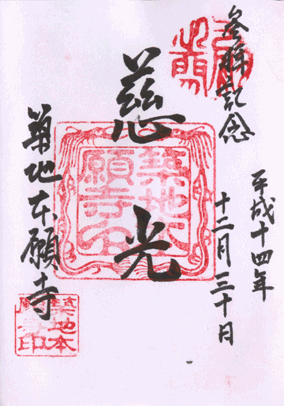 参拝記念
平成十四年
十二月三十日
慈光
築地本願寺
築地本願寺
築地本願寺印